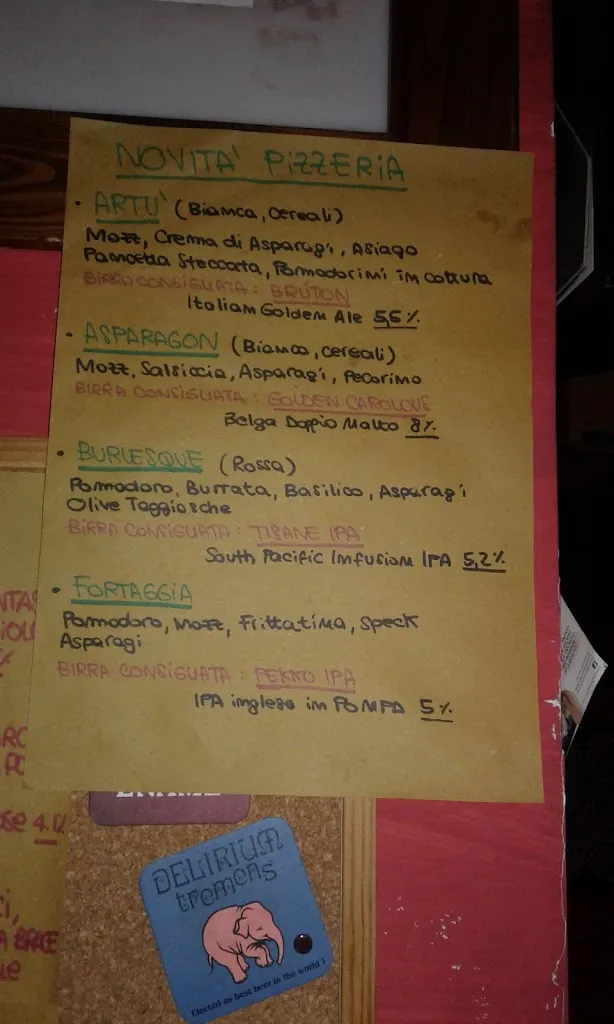 NOVITA' PIZZERIA
• ARTU' (Bianca, cereali)
Mozz, Crema di Asparagi, Asiago
Pancetta Steccata, Pomodorini in cottura
BIRRA CONSIGLIATA : BRÚTON
Italian Golden Ale 5,5%
• ASPARAGON (Bianca, cereali)
Mozz, Salsiccia, Asparagi, Pecorino
BIRRA CONSIGLIATA : GOLDEN CAROLOUS
Belga Doppio Malto 8%
• BURLESQUE (Rossa)
Pomodoro, Burrata, Basilico, Asparagi
Olive Taggiasche
BIRRA CONSIGLIATA : TISANE IPA
South Pacific Infusion IPA 5,2%
• FORTAGGIA
Pomodoro, Mozz, Frittatina, Speck
Asparagi
BIRRA CONSIGLIATA : PEKKO IPA
IPA inglese in POMPA 5%
DELIRIUM
tremens
Elected as best beer in the world !